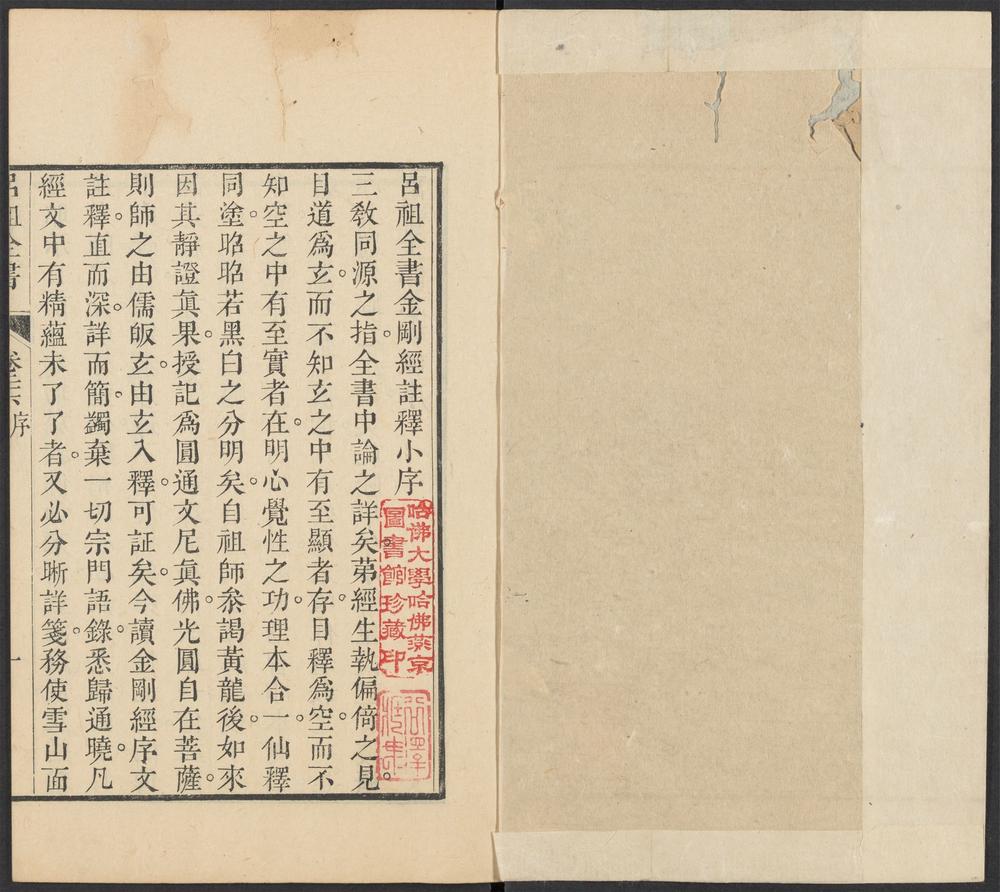 呂祖全書金剛經註釋小序
三敎同源之指。全書中論之詳矣。第經生執偏倚之見。
目道爲玄。而不知玄之中有至顯者存。目釋爲空。而不
知空之中有至實者在。明心覺性之功。理本合一。仙釋
同塗。昭昭若黑白之分明矣。自祖師叅謁黃龍後。如來
因其靜證眞果。授記爲圓通文尼眞佛。光圓自在菩薩。
則師之由儒皈玄。由玄入釋。可証矣。今讀金剛經序文
註釋。直而深。詳而簡。蠲棄一切宗門語錄。悉歸通曉。凡
經文中有精蘊未了了者。又必分晰詳箋。務使雪山面
呂祖全書
序
一
哈佛大學哈佛燕京
圖書館珍藏印